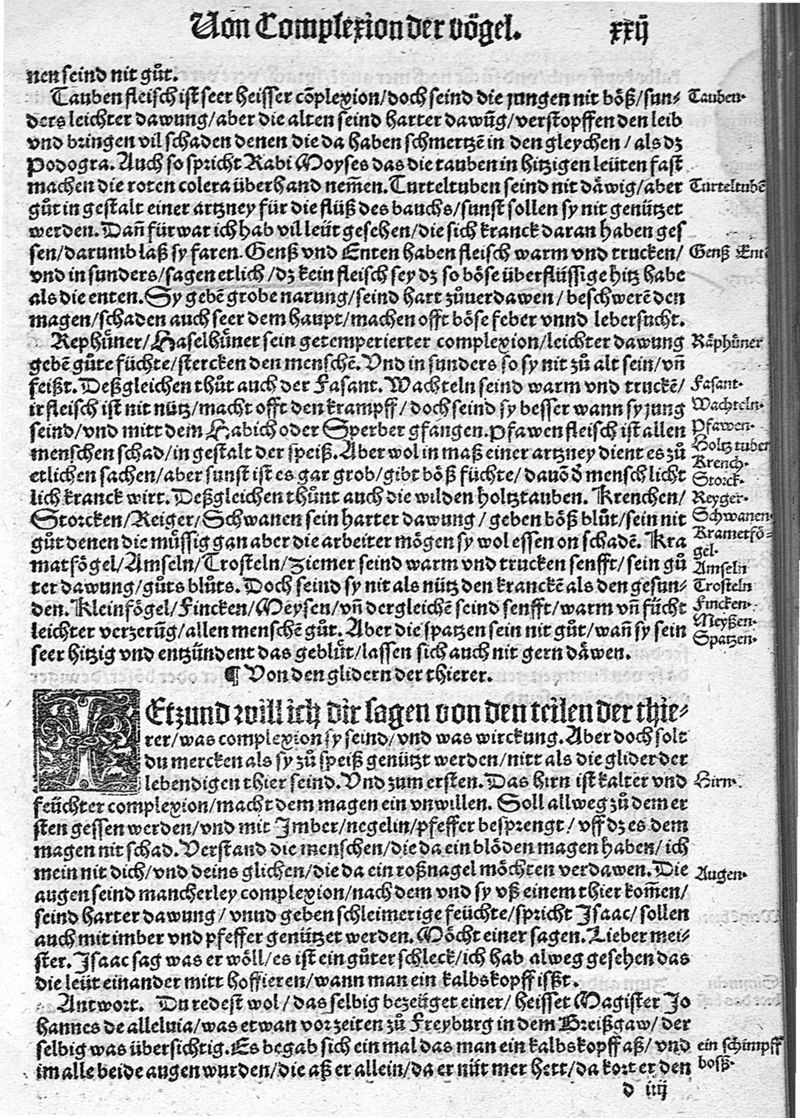 Von Complexion der vögel. xxij
nen seind nit gůt.
Tauben fleisch ist seer heisser cõplexion/doch seind die jungen nit böß/sun- Tauben.
ders leichter dawung/aber die alten seind harter dawũg/verstopffen den leib
vnd bringen vil schaden denen die da haben schmertzẽ in den gleychen/als dz
Podogra. Auch so spricht Rabi Moyses das die tauben in hitzigen leüten fast
machen die roten colera überhand nem̃en. Turteltuben seind nit däwig/aber Turteltubẽ
gůt in gestalt einer artzney für die flüß des bauchs/sunst sollen sy nit genützet
werden. Dañ fürwar ich hab vil leüt gesehen/die sich kranck daran haben ges
sen/darumb laß sy faren. Genß vnd Enten haben fleisch warm vnd trucken/ Genß Ent
vnd in sunders/sagen etlich/dz kein fleisch sey dz so böse überflüssige hitz habe
als die enten. Sy gebẽ grobe narung/seind hart zůuerdawen/beschwerẽ den
magen/schaden auch seer dem haupt/machen offt böse feber vnnd lebersucht.
Rephůner/Haselhůner sein getemperierter complexion/leichter dawung Räphůner
gebẽ gůte füchte/stercken den menschẽ. Vnd in sunders so sy nit zů alt sein/vñ
feißt. Deßgleichen thůt auch der Fasant. Wachteln seind warm vnd truckẽ/ Fasant.
ir fleisch ist nit nütz/macht offt den krampff/doch seind sy besser wann sy jung Wachteln.
seind/vnd mitt dem Habich oder Sperber gfangen. Pfawen fleisch ist allen Pfawen.
menschen schad/in gestalt der speiß. Aber wol in maß einer artzney dient es zů Holtz tuben
etlichen sachen/aber sunst ist es gar grob/gibt böß füchte/dauõ d̃ mensch licht Krench.
Storck.
lich kranck wirt. Deßgleichen thůnt auch die wilden holtztauben. Krenchen/ Reyger.
Storcken/Reiger/Schwanen sein harter dawung/geben böß blůt/sein nit Schwanen
gůt denen die müssig gan aber die arbeiter mögen sy wol essen on schadẽ. Kra Krametfö-
gel.
matfögel/Amseln/Trosteln/Ziemer seind warm vnd trucken senfft/sein gů Amseln
ter dawung/gůts blůts. Doch seind sy nit als nütz den kranckẽ als den gesun- Trosteln
den. Kleinfögel/Fincken/Meysen/vñ dergleichẽ seind senfft/warm vñ fücht Fincken.
leichter verzerũg/allen menschẽ gůt. Aber die spatzen sein nit gůt/wañ sy sein Meyßen.
Spatzen.
seer hitzig vnd entzündent das geblüt/lassen sich auch nit gern däwen.
¶ Von den glidern der thierer.
IEtzund will ich dir sagen von den teilen der thie-
rer/was complexion sy seind/vnd was wirckung. Aber doch solt
du mercken als sy zů speiß genützt werden/nitt als die glider der
lebendigen thier seind. Vnd zum ersten. Das hirn ist kalter vnd Hirn.
feüchter complexion/macht dem magen ein vnwillen. Soll allweg zů dem er
sten gessen werden/vnd mit Imber/negelin/pfeffer besprengt/vff dz es dem
magen nit schad. Verstand die menschen/die da ein blöden magen haben/ich
mein nit dich/vnd deins glichen/die da ein roßnagel möchten verdawen. Die Augen.
augen seind mancherley complexion/nach dem vnd sy vß einem thier kom̃en/
seind harter dawung/vnnd geben schleimerige feüchte/spricht Isaac/sollen
auch mit imber vnd pfeffer genützet werden. Möcht einer sagen. Lieber mei-
ster. Isaac sag was er wöll/es ist ein gůter schleck/ich hab alweg gesehen das
die leüt einander mitt hoffieren/wann man ein kalbskopff ißßt.
Antwort. Du redest wol/das selbig bezeüget einer/heisset Magister Jo
hannes de alleluia/was etwan vorzeiten zů Freyburg in dem Breißgaw/der
selbig was übersichtig. Es begab sich ein mal das man ein kalbskopff aß/vnd ein schimpff
im alle beide augen wurden/die aß er allein/da er nüt mer hett/da kort er den boß.
d iiij